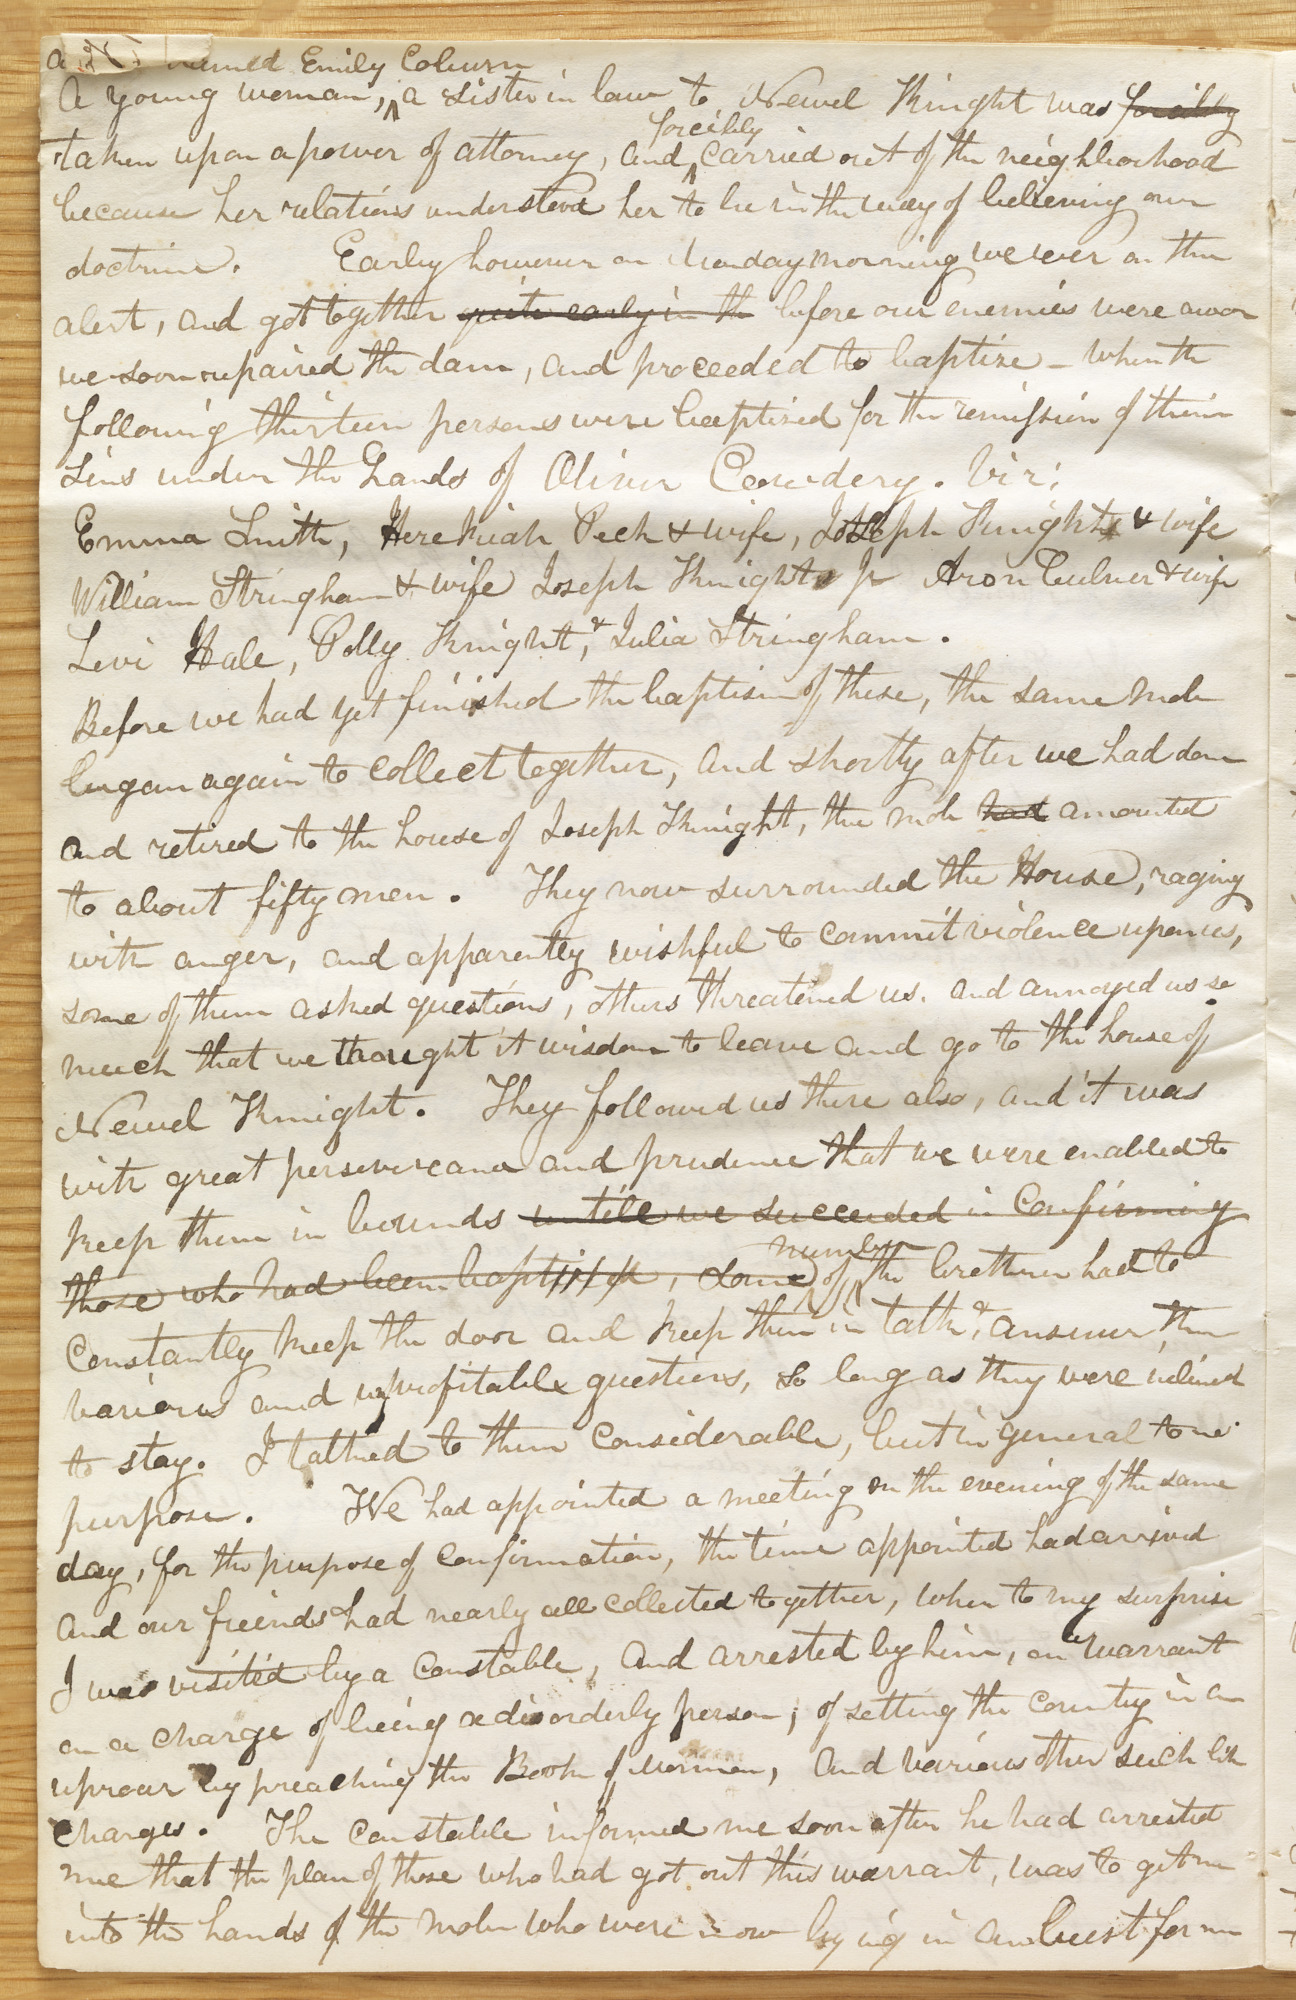 named Emily Coburn
A young woman, ^ a sister in law to Newel Knight was forcibly
forcibly
taken upon a power of attorney, and ^ carried out of the neighborhood
because her relations understood her to be in the way of believing our
doctrine. Early however on Monday morning we were on the
alert, and got together quite early in the before our enemies were awar
we soon repaired the dam, and proceeded to baptize - When the
following thirteen persons were baptized for the remission of their
Sins under the hands of Oliver Cowdery. Viz;
Emma Smith, Hezekiah Peck & wife, Joseph Knight & wife
William Stringham & wife Joseph Knight Jr Aron Culver & wife
Levi Hale, Polly Knight, & Julia Stringham.
Before we had yet finished the baptism of these, the same mob
began again to collect together, and shortly after we had done
and retired to the house of Joseph Knight, the mob had amounted
to about fifty men. They now surrounded the House, raging
with anger, and apparently wishful to commit violence upon us,
some of them asked questions, others threatened us. and annoyed us so
much that we thought it wisdom to leave and go to the house of
Newel Knight. They followed us there also, and it was
with great perseverance and prudence that we were enabled to
keep them in bounds untill we succeeded in Confirming
number
those who had been baptized, some of the brethren had to
Constantly keep the door and keep them in talk & answer their
various and unprofitable questions, so long as they were inclined
to stay. I talked to them considerable, but in general to no
purpose. We had appointed a meeting on the evening of the same
day, for the purpose of confirmation, the time appointed had arrived
and our freinds had nearly all collected together, when to my surprise
I was visited by a Constable, and arrested by him, on a warrant
on a charge of being a disorderly person; of setting the country in an
uproar by preaching the Book of Mormon, and various other such like
charges. The constable informed me soon after he had arrested
me that the plan of those who had got out this warrant, was to get me
into the hands of the mob who were now lying in ambust for me